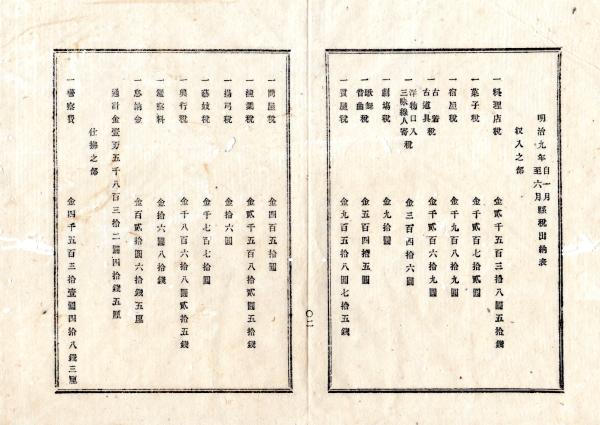 明治九年自一月至六月縣税出納表
收入之部
一料理店税 金貳千五百三拾八圓五拾錢
一菓子税 金千貳百七拾貳圓
一宿屋税 金千九百八拾九圓
一古着古道具税 金千貳百六拾九圓
一洋物口入三際雜人寄税 金三百四拾六圓
一劇塲税 金九拾圓
一歌舞音曲税 金五百四拾五圓
一質屋税 金九百五拾八圓七拾五錢
〇二
一問屋税 金四百五拾圓
一漁業税 金貳千五百八拾貳圓五拾錢
一楊弓税 金拾六圓
一藝妓税 金千七百七拾圓
一興行税 金千八百六拾八圓貳拾五錢
一鑑察料 金拾六圓八拾錢
一息納金 金百貳拾圓六拾錢五厘
通計金壹万五千八百三拾二圓四拾錢五厘
仕拂之部
一警察費 金四千五百三拾壹圓四拾八錢三厘